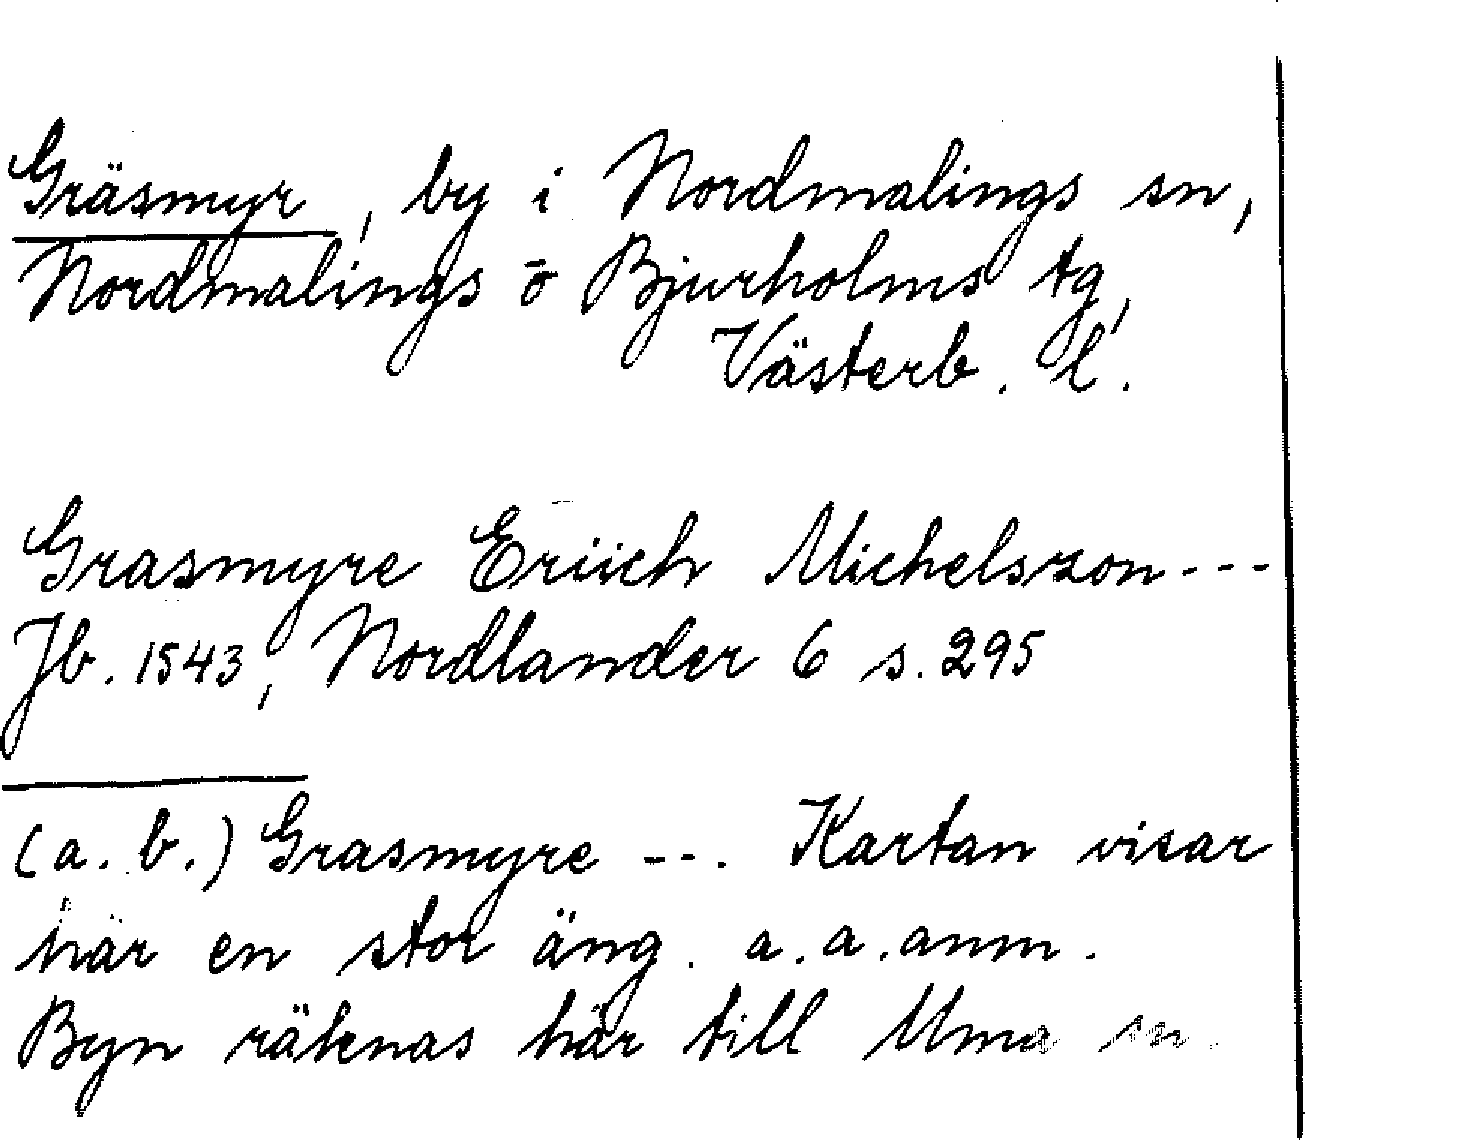 Gräsmyr, by i Nordmalings sn,
Nordmalings o Bjurholms tg,
Västerb. l.
Grasmyre Eriich Michelszon ---
Jb. 1543, Nordlander 6 s. 295
(a. b.) Grasmyre --. Kartan visar
här en stor äng. a. a. anm.
Byn räknas här till Uma sn.